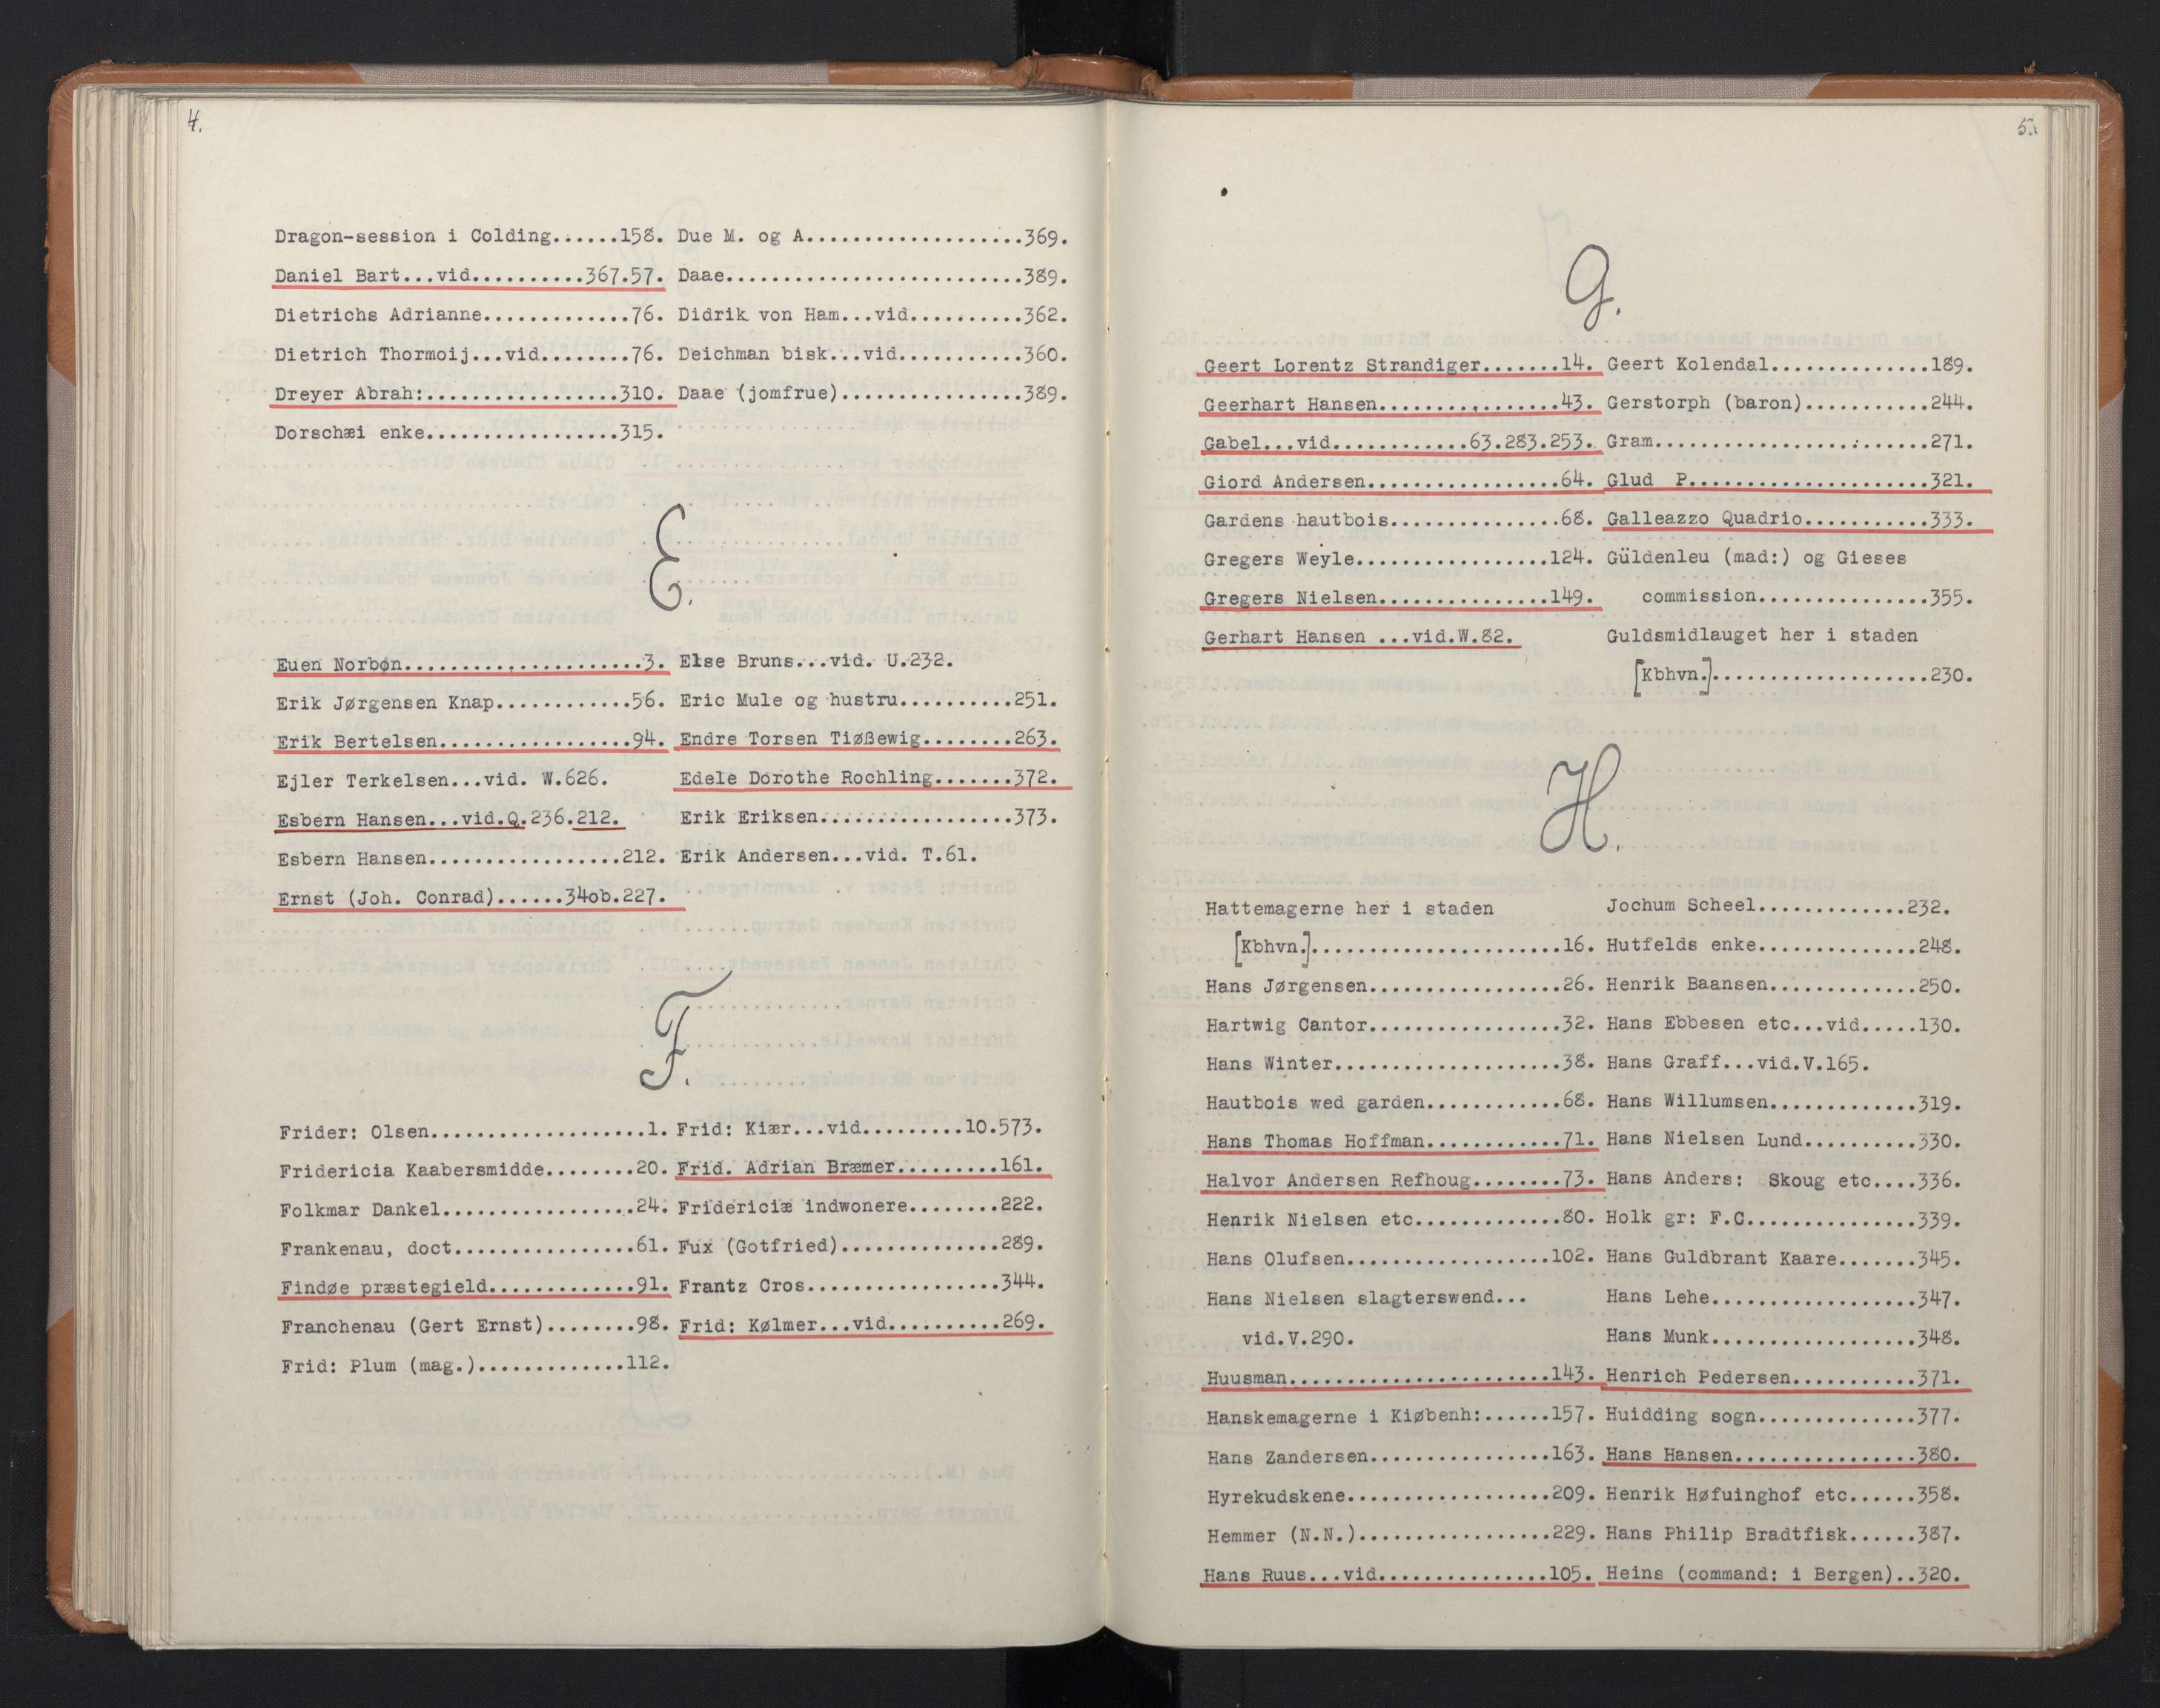 4.
Dragon-session i Colding......158.
Daniel Bart...vid..........367.57.
Dietrichs Adrianne.............76.
Dietrich Thormoij...vid........76.
Dreyer Abrah:.................310.
Dorschæi enke.................315.
Due M. og A....................369.
Daae...........................389.
Didrik von Ham...vid..........362.
Deichman bisk...vid...........360.
Daae (jomfrue)................389.
E.
Euen Norbøn......................3.
Erik Jørgensen Knap............56.
Erik Bertelsen.................94.
Ejler Terkelsen...vid. W.626.
Esbern Hansen...vid.Q.236.212.
Esbern Hansen.................212.
Ernst (Joh. Conrad)......34ob.227.
Else Bruns...vid. U.232.
Eric Mule og hustru..........251.
Endre Torsen Tiøßewig........263.
Edele Dorothe Rochling.......372.
Erik Eriksen.................373.
Erik Andersen...vid. T.61.
F.
Frider: Olsen...................1.
Fridericia Kaabersmidde........20.
Folkmar Dankel.................24.
Frankenau, doct................61.
Findøe præstegield.............91.
Franchenau (Gert Ernst)........98.
Frid: Plum (mag.).............112.
Frid: Kiær...vid.........10.573.
Frid. Adrian Bræmer.........161.
Fridericiæ indwonere........222.
Fux (Gotfried)..............289.
Frantz Cros.................344.
Frid: Kølmer...vid..........269.
5.
G.
Geert Lorentz Strandiger.......14.
Geerhart Hansen................43.
Gabel...vid............63.283.253.
Giord Andersen.................64.
Gardens hautbois...............68.
Gregers Weyle.................124.
Gregers Nielsen...............149.
Gerhart Hansen ...vid.W.82.
Geert Kolendal..............189.
Gerstorph (baron)...........244.
Gram........................271.
Glud P.....................321.
Galleazzo Quadrio...........333.
Güldenleu (mad:) og Gieses
commission...............355.
Guldsmidlauget her i staden
[Kbhvn.]...................230.
H.
Hattemagerne her i staden
[Kbhvn.].......................16.
Hans Jørgensen.................26.
Hartwig Cantor.................32.
Hans Winter....................38.
Hautbois wed garden............68.
Hans Thomas Hoffman............71.
Halvor Andersen Refhoug........73.
Henrik Nielsen etc.............80.
Hans Olufsen..................102.
Hans Nielsen slagterswend...
vid.V.290.
Huusman.......................143.
Hanskemagerne i Kiøbenh:......157.
Hans Zandersen................163.
Hyrekudskene..................209.
Hemmer (N.N.).................229.
Hans Ruus...vid...............105.
Jochum Scheel.............232.
Hutfelds enke..............248.
Henrik Baansen.............250.
Hans Ebbesen etc...vid.....130.
Hans Graff...vid.V.165.
Hans Willumsen.............319.
Hans Nielsen Lund..........330.
Hans Anders: Skoug etc....336.
Holk gr: F.C...............339.
Hans Guldbrant Kaare.......345.
Hans Lehe..................347.
Hans Munk..................348.
Henrich Pedersen...........371.
Huidding sogn..............377.
Hans Hansen................380.
Henrik Høfuinghof etc......358.
Hans Philip Bradtfisk......387.
Heins (command: i Bergen)..320.